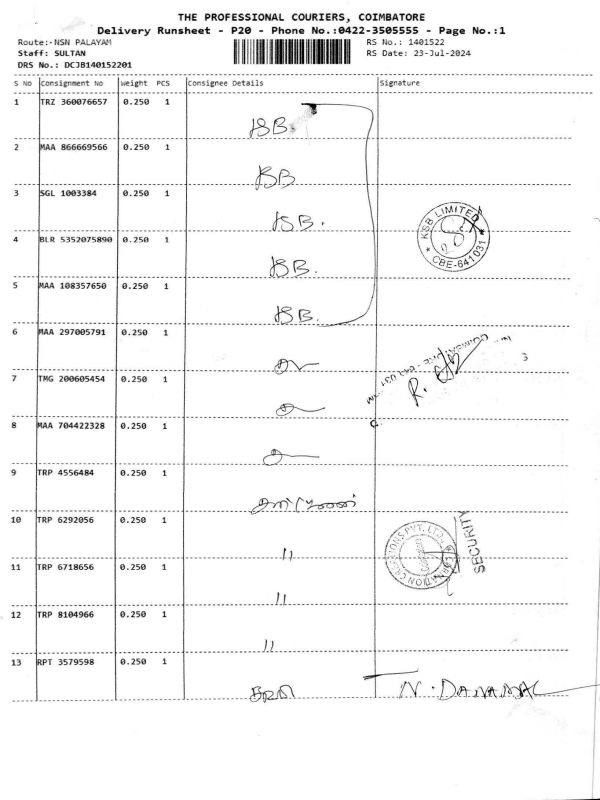 THE PROFESSIONAL COURIERS, COIMBATORE
Delivery Runsheet - P20 - Phone No.:0422-3505555 - Page No.:1
Route:- NSN PALAYAM RS No.: 1401522
Staff: SULTAN RS Date: 23-Jul-2024
DRS No.: DCJB140152201
S No Consignment No Weight PCS Consignee Details Signature
1 TRZ 360076657 0.250 1
2 MAA 866669566 0.250 1
3 SGL 1003384 0.250 1
KSB LIMITED
4 BLR 5352075890 0.250 1
* CBE-641031 *
5 MAA 108357650 0.250 1
6 MAA 297005791 0.250 1
7 TMG 200605454 0.250 1
8 MAA 704422328 0.250 1
9 TRP 4556484 0.250 1
10 TRP 6292056 0.250 1 "
SECURITY
11 TRP 6718656 0.250 1 "
12 TRP 8104966 0.250 1 "
13 RPT 3579598 0.250 1